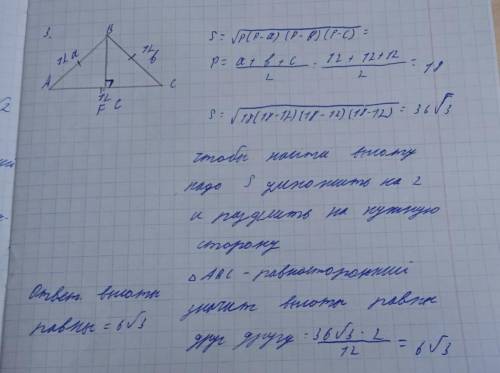 3.
B
12 a
12 b
A
C
12
F C
S = √(P(P-a)(P-b)(P-c)) =
P = (a + b + c)/2 = (12 + 12 + 12)/2 = 18
S = √(18(18-12)(18-12)(18-12)) = 36√3
чтобы найти высоту
надо S умножить на 2
и разделить на нужную
сторону
△ABC - равносторонний
значит высоты равны
друг другу = (36√3 · 2)/12 = 6√3
Ответ высоты
равны = 6√3